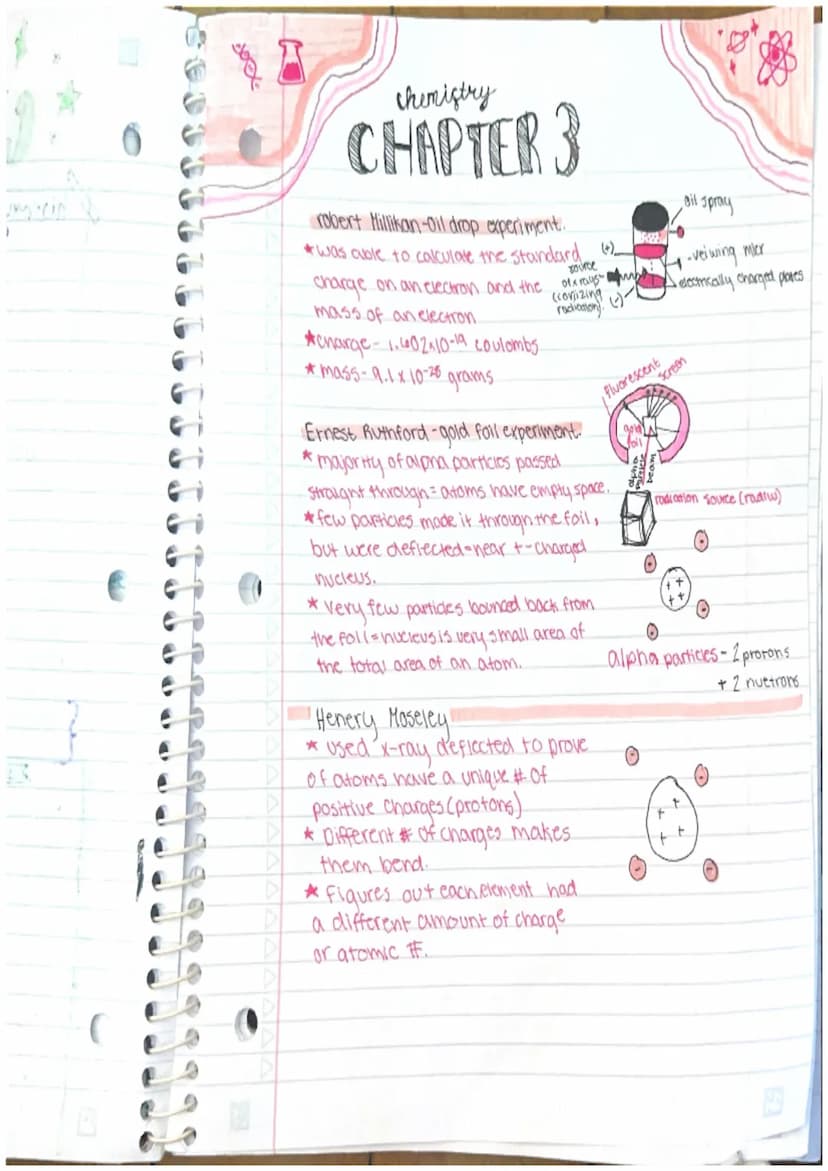 chemistry
CHAPTER 3
robert Millikan-oil drop experiment.
*was able to calculate the standard
charge on an electron and the
mass of an electron
*charge- 1.602x10-19 coulombs
*mass-9.1x10-28 grams
oil spray
(+)
-veiwing micr
electrically charged plates
source
of x rays
radiation).
(-)
Ernest Ruthford-gold foil experiment.
*majority of alpha particles passed
straight through= atoms have empty space.
*few particles made it through the foil,
but were deflected=near +-charged
nucleus.
*very few particles bounced back from
the foil=nucleus is very small area of
the total area of an atom.
fluorescent screen
gold
foil
alpha
particle
beam
radiation source (radium)
+ +
+ +
alpha particles- 2 protons
+ 2 nuetrons
Henery Moseley
* used x-ray deflected to prove
of atoms have a unique # of
positive charges (protons)
* Different # of charges makes
them bend.
* Figures out each element had
a different amount of charge
or atomic #.
+ +
+ +